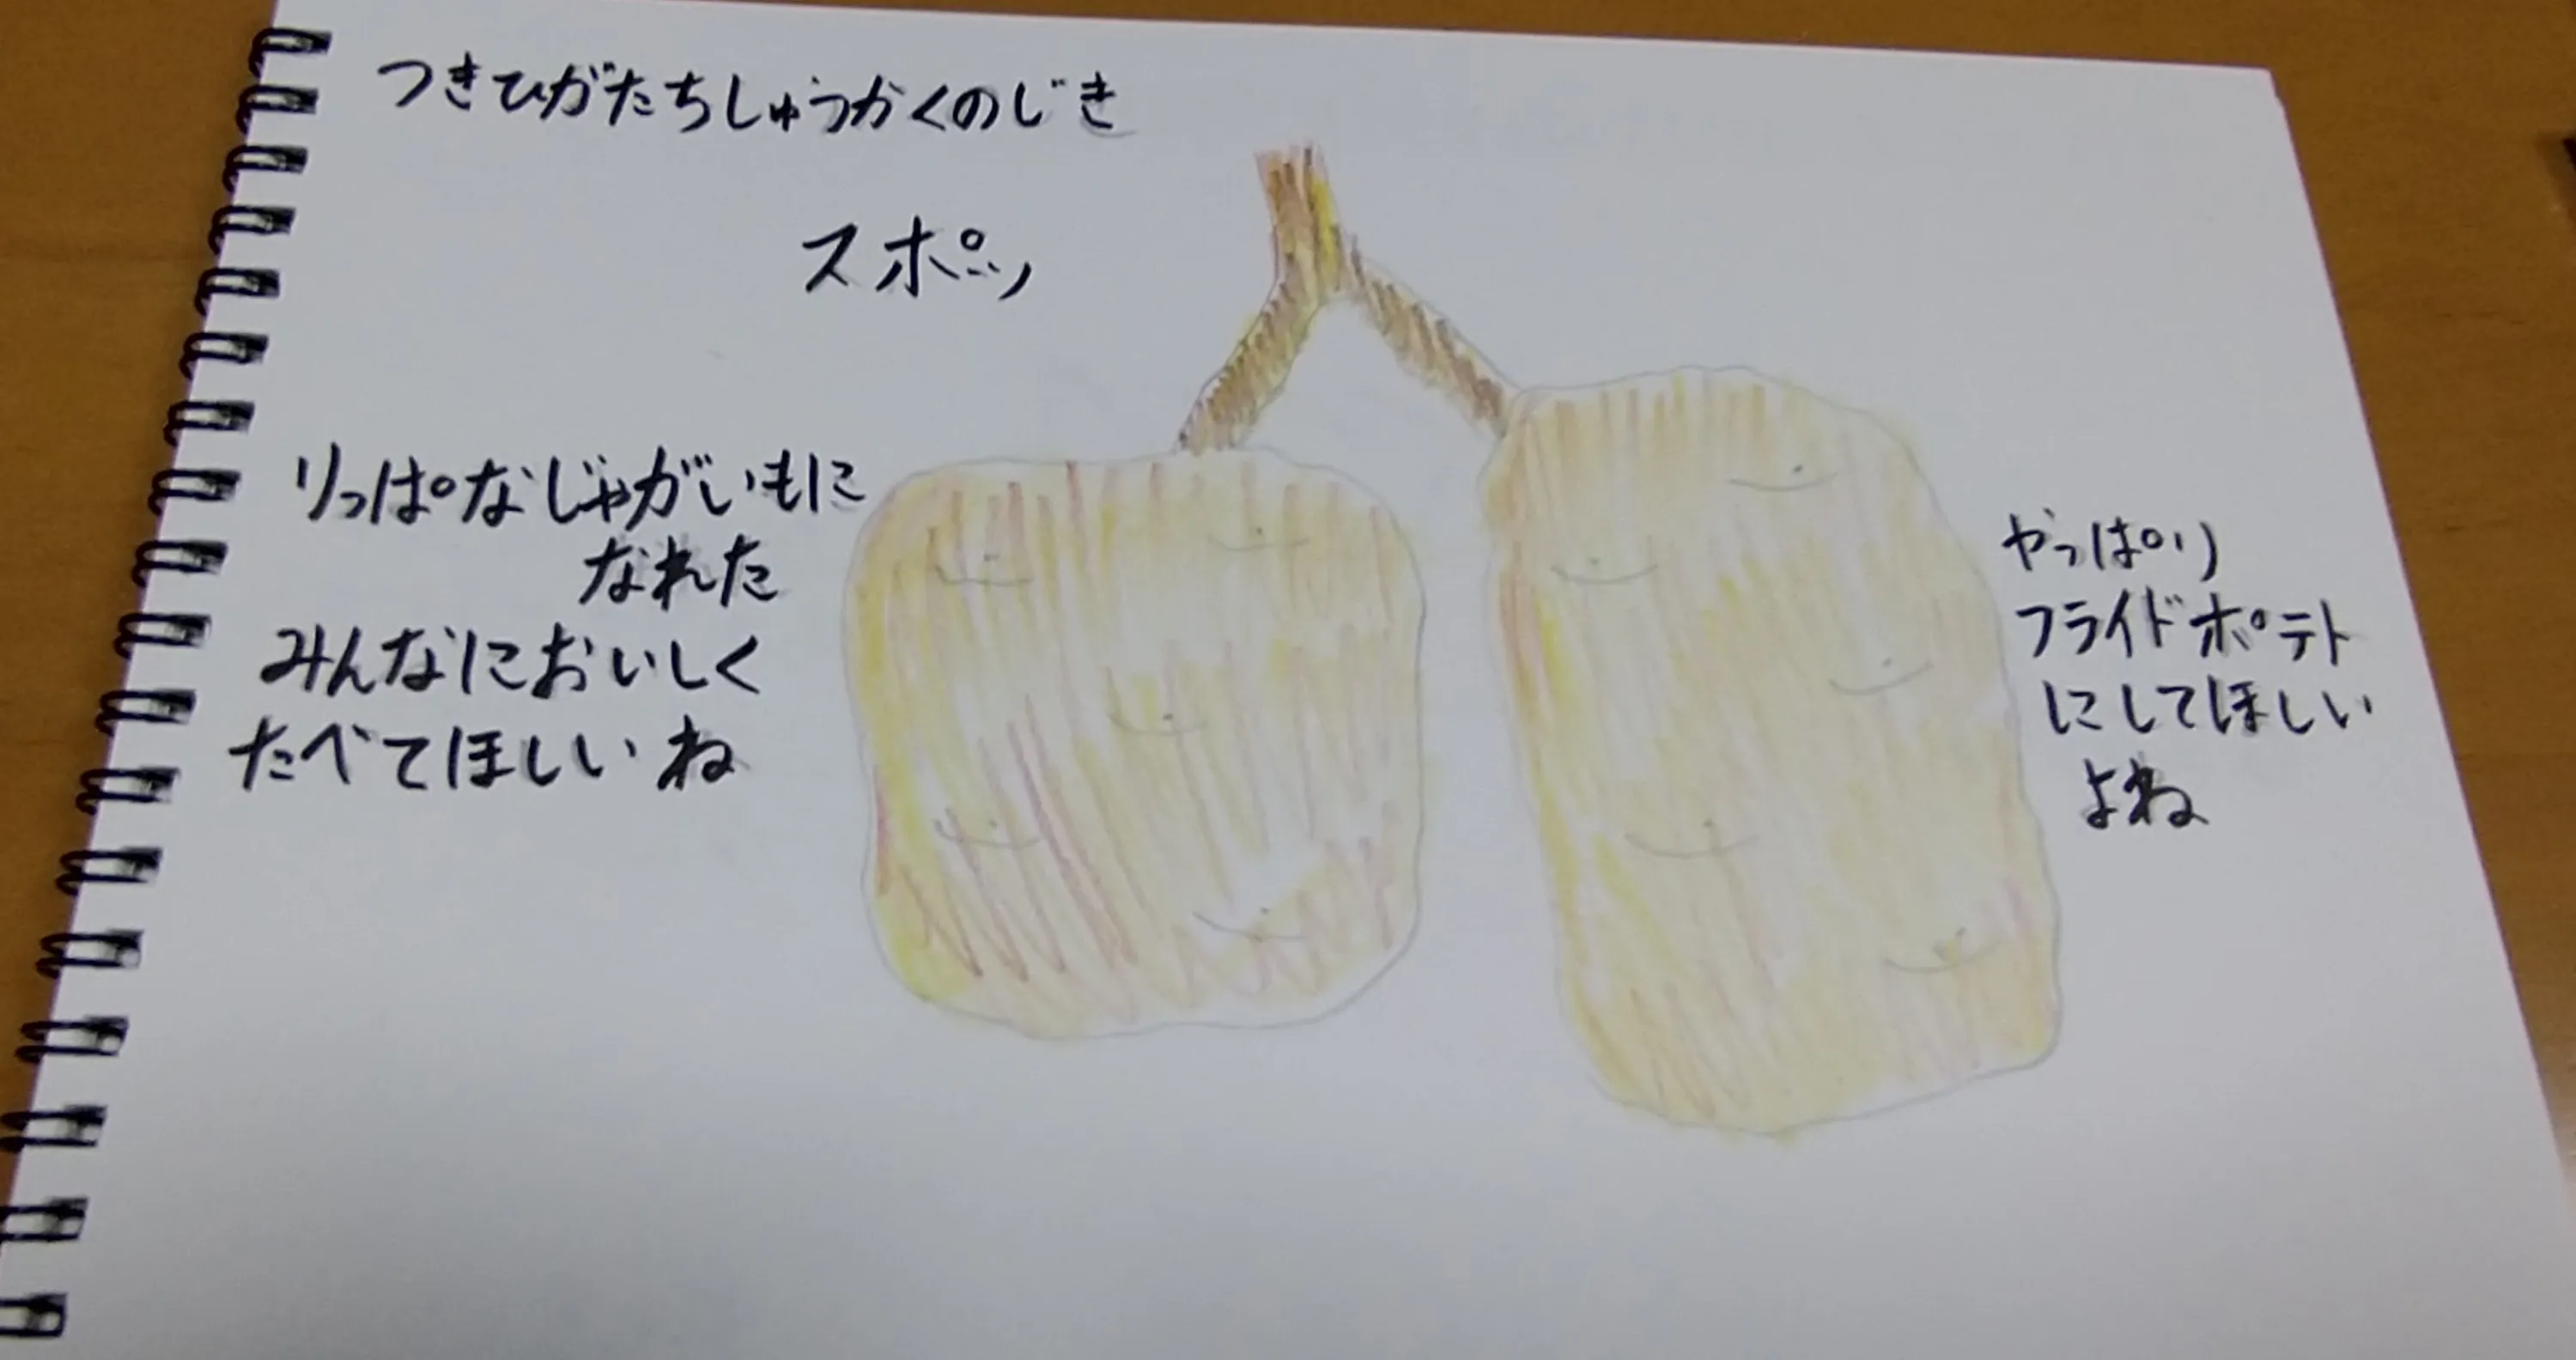 つきひがたちしゅうかくのじき
スポッ
りっぱなじゃがいもに
なれた
みんなにおいしく
たべてほしいね
やっぱり
フライドポテト
にしてほしい
よね